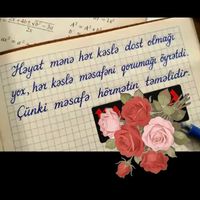 Həyat mənə hər kəslə dost olmağı
yox, hər kəslə məsafəni qorumağı öyrətdi.
Çünki məsafə hörmətin təməlidir.